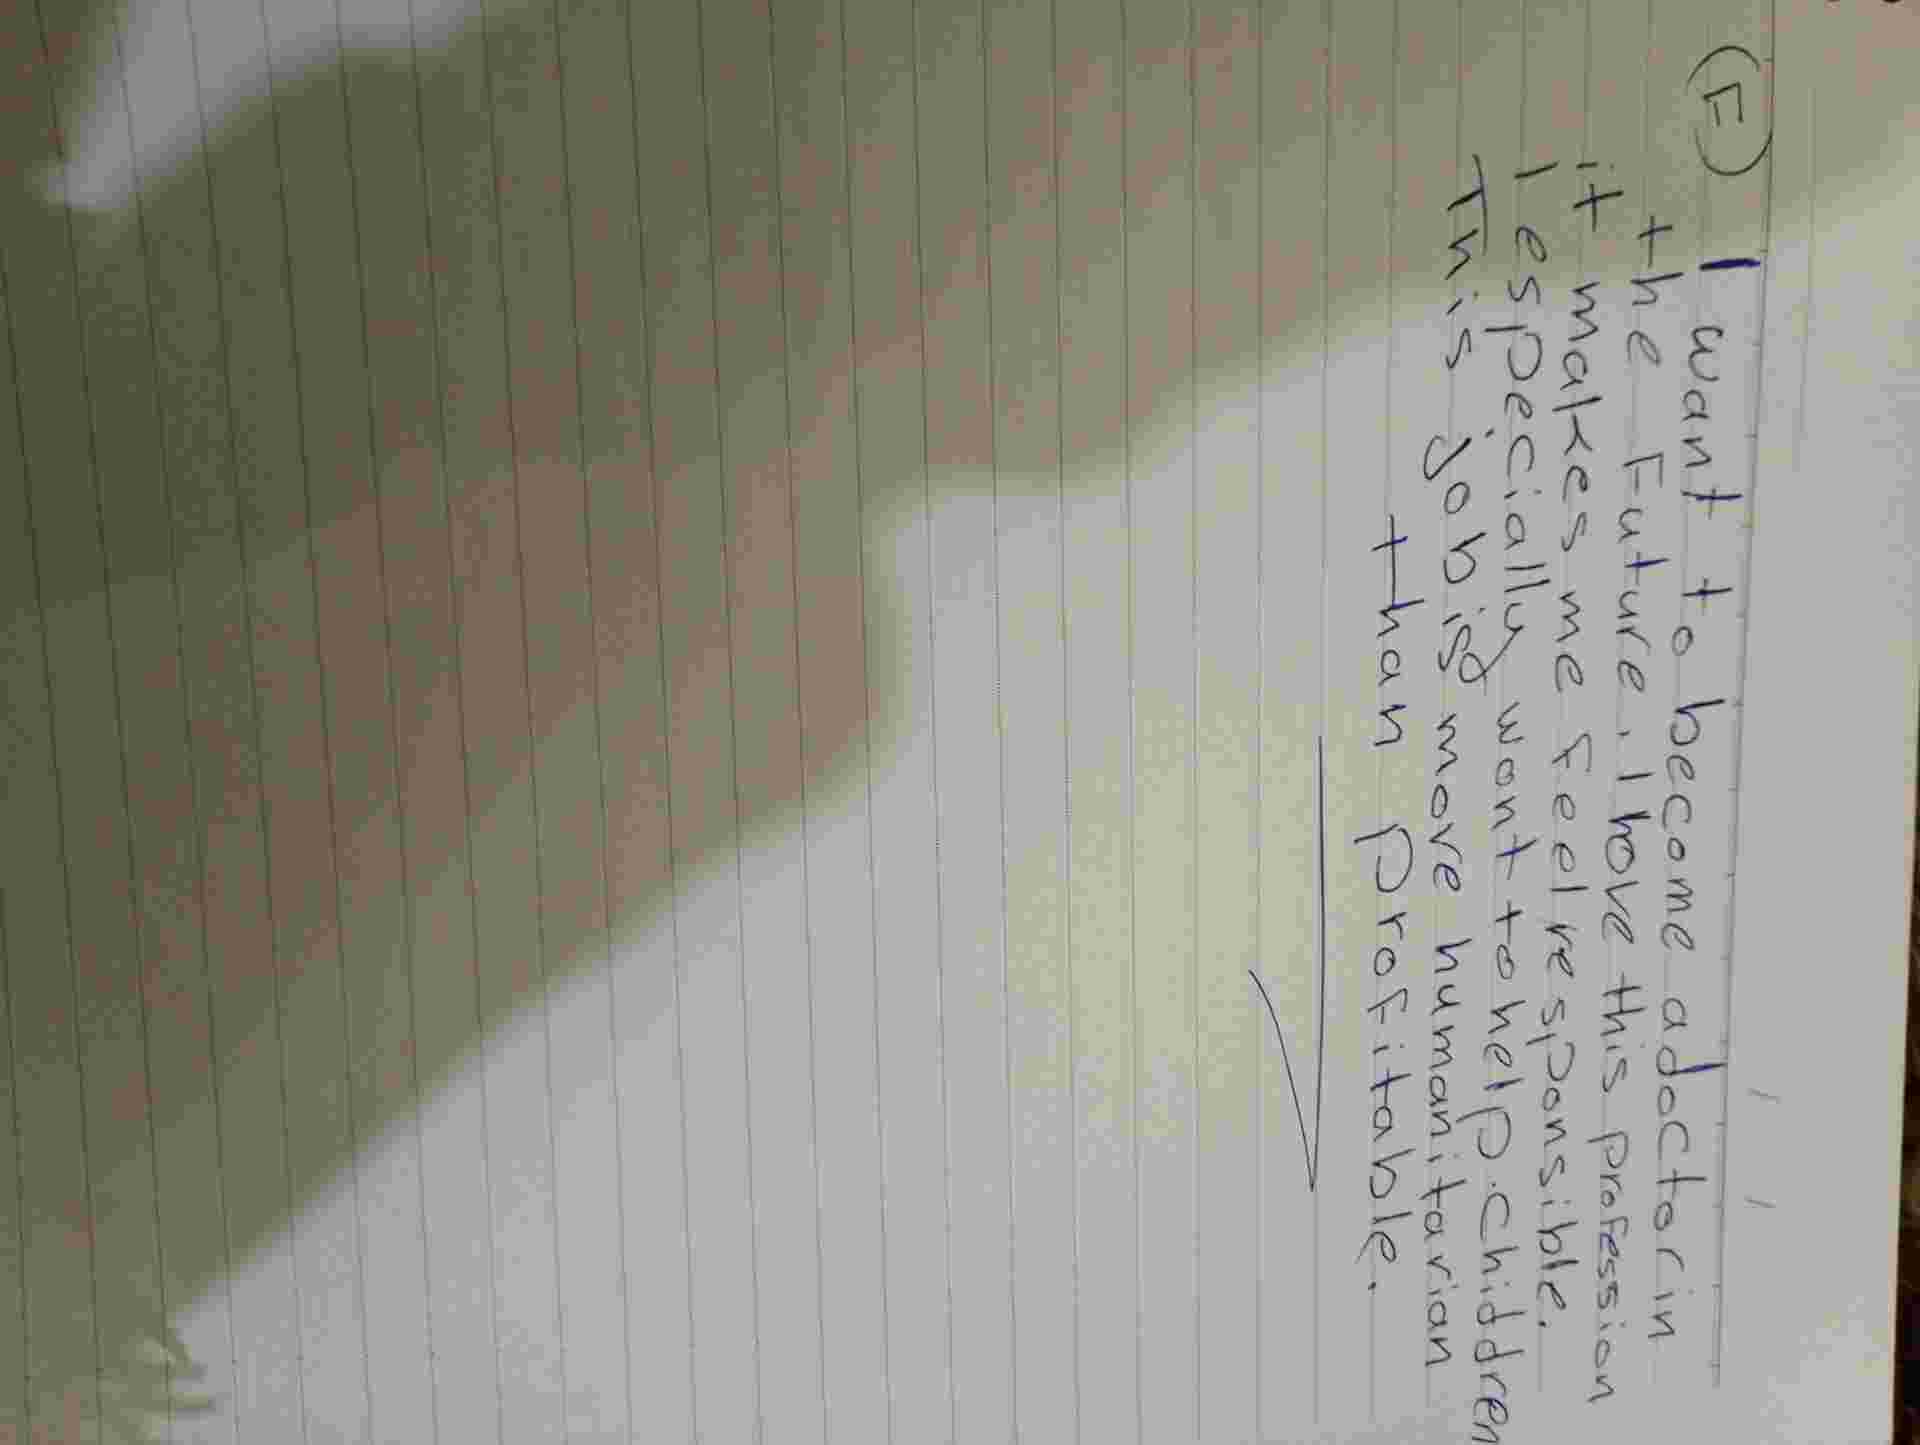 (F) I want to become a doctor in
the Future. I love this profession
it makes me feel responsible.
I especially want to help.chiddren
This job is more humanitarian
than profitable.